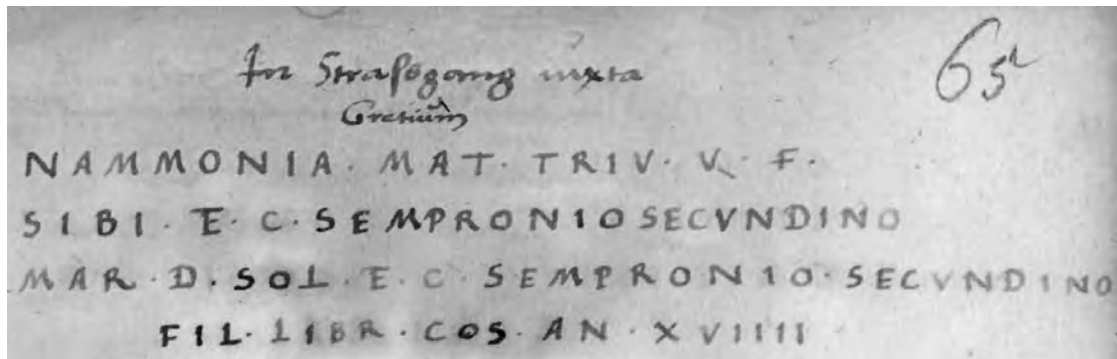 In Strassgang iuxta 65r
Gretium
NAMMONIA · MAT · TRIV · V · F ·
SIBI · E · C · SEMPRONIO SECVNDINO
MAR · D · SOL · E · C · SEMPRONIO · SECVNDINO
FIL · LIBR · COS · AN · XVIIII